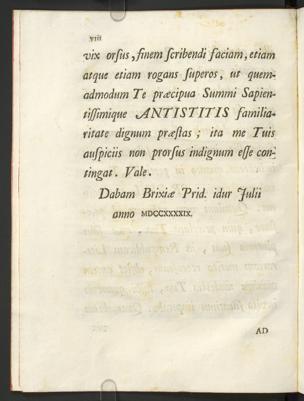 viii
vix orsus, finem scribendi faciam, etiam
atque etiam rogans superos, ut quem-
admodum Te præcipua Summi Sapien-
tissimique ANTISTITIS familia-
ritate dignum præstas; ita me Tuis
auspiciis non prorsus indignum esse con-
tingat. Vale.
Dabam Brixiæ Prid. idur Julii
anno MDCCXXXXIX.
AD